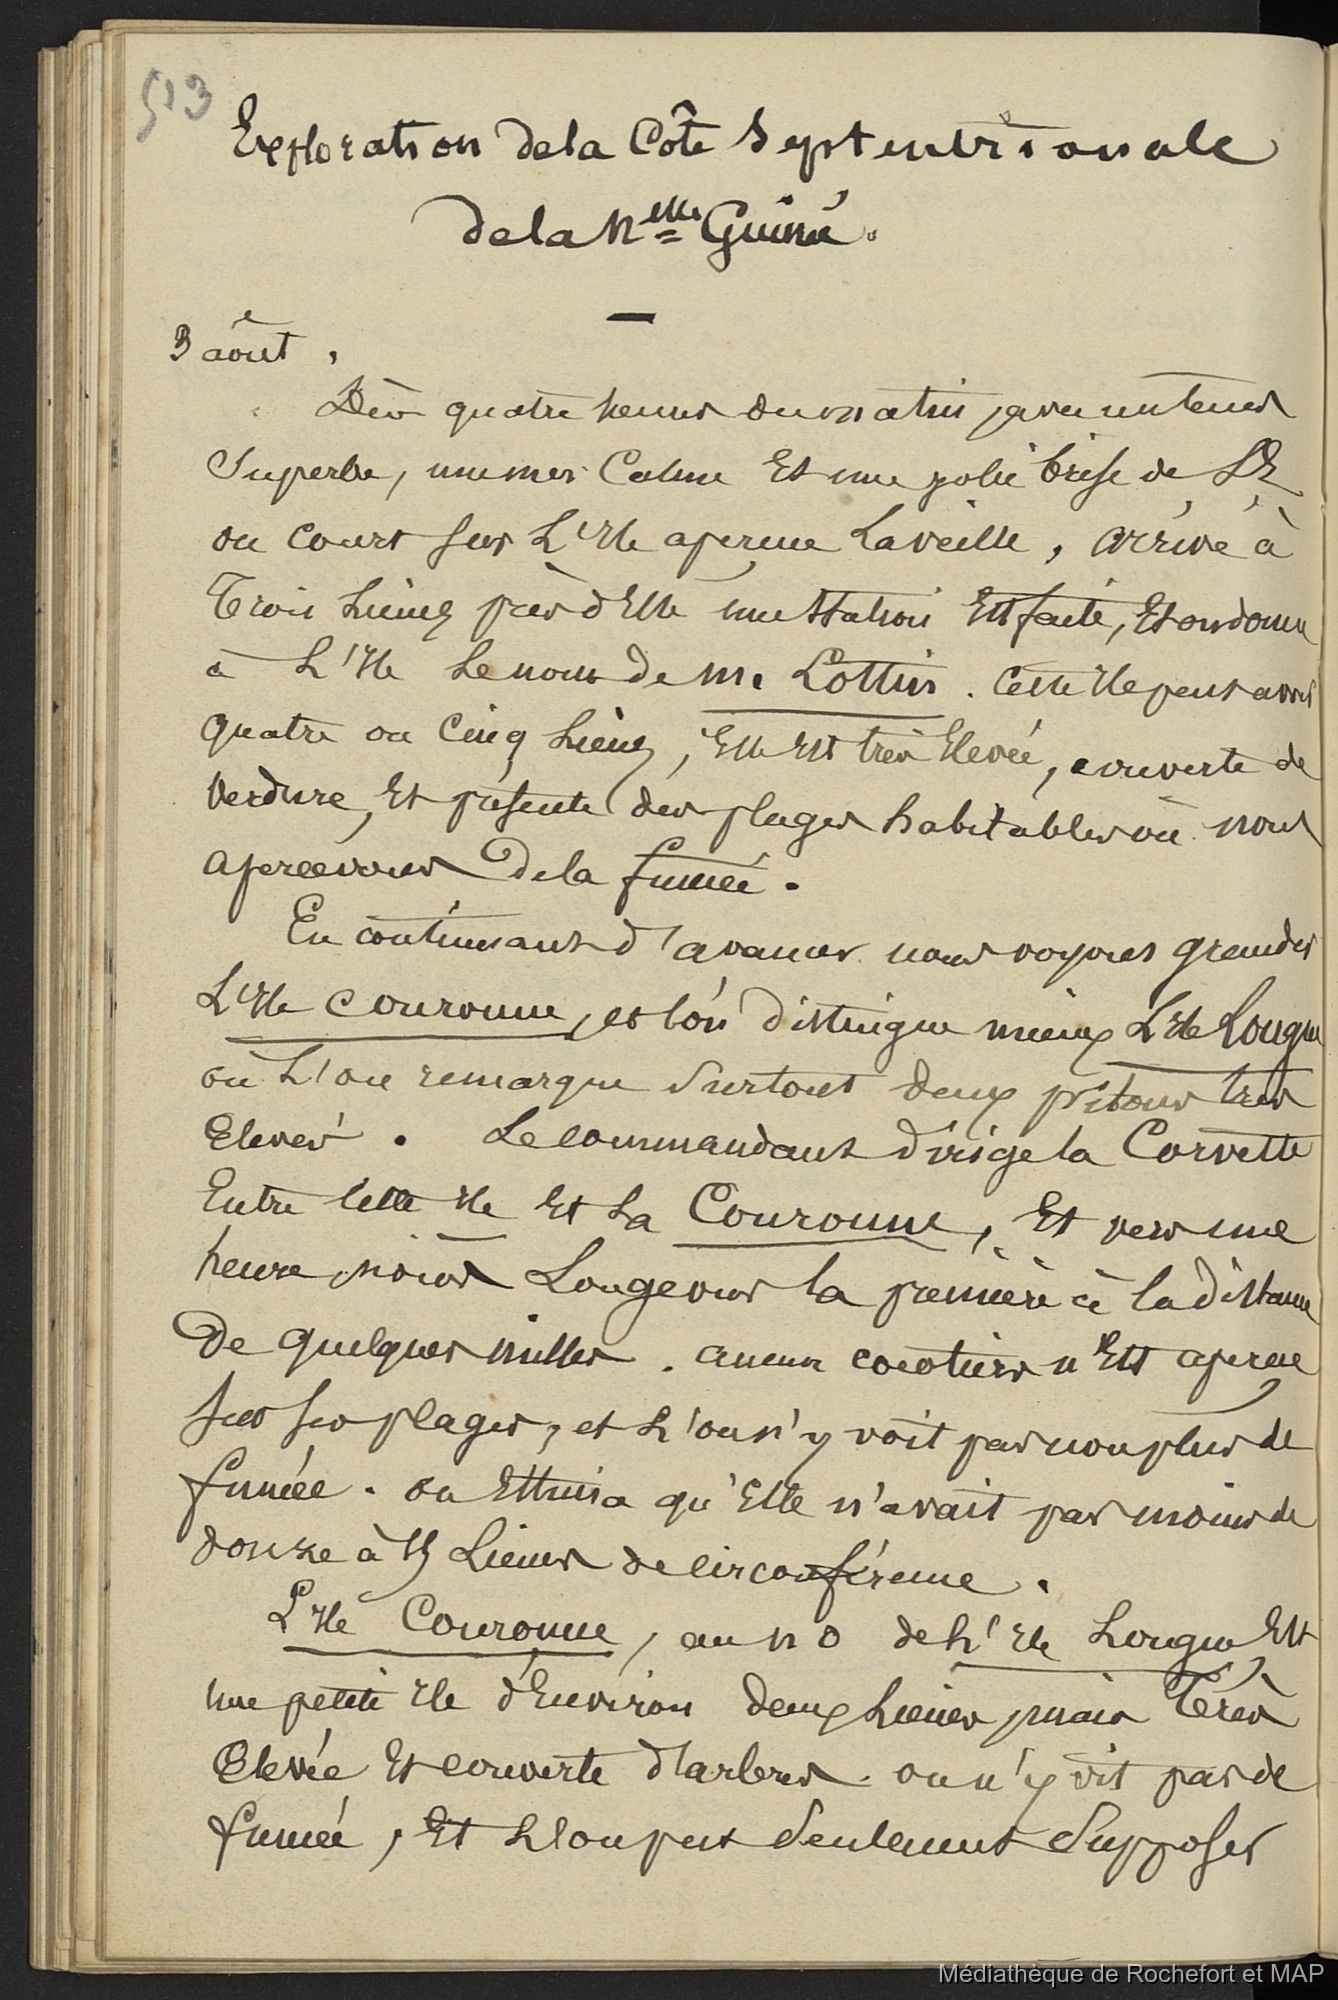 513
Exploration de la Côte Septentrionale
de la Nelle Guinée.
3 août.
Dès quatre heures du matin, avec un tems
Superbe, une mer Calme Et une jolie brise de SE
on court sur L'Ile aperçue La veille, arrivé à
Trois Lieues près d'Elle une Station Est faite, Et on donne
à L'Ile Le nom de M. Lottin. Cette Ile peut avoir
quatre ou Cinq Lieues, Elle Est très Elevée, couverte de
Verdure, Et présente des plages habitables où nous
apercevons de la fumée.
En continuant d'avancer nous voyons grandir
L'Ile Couronne, et l'on distingue mieux L'Ile Longue
où L'on remarque Surtout deux pitons très
Elevés. Le commandant dirige la Corvette
Entre Cette Ile Et La Couronne, Et vers une
heure, nous Longeons la première à la distance
De quelques milles. aucun cocotiers n'Est aperçu
sur ses plages, et L'on n'y voit pas non plus de
fumée. on Estima qu'Elle n'avait pas moins de
douze à 15 Lieues de circonférence.
L'Ile Couronne, au NO de L'Ile Longue Est
une petite Ile d'Environ deux Lieues, mais Très
Elevée Et couverte d'arbres. on n'y vit pas de
fumée, Et L'on put Seulement Supposer
Médiathèque de Rochefort et MAP